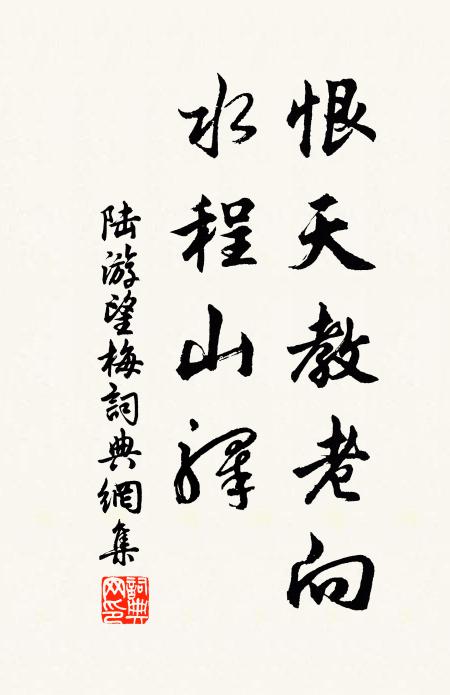 恨天教老向
水程山驛
陆游望梅詞典網集
詞典网印